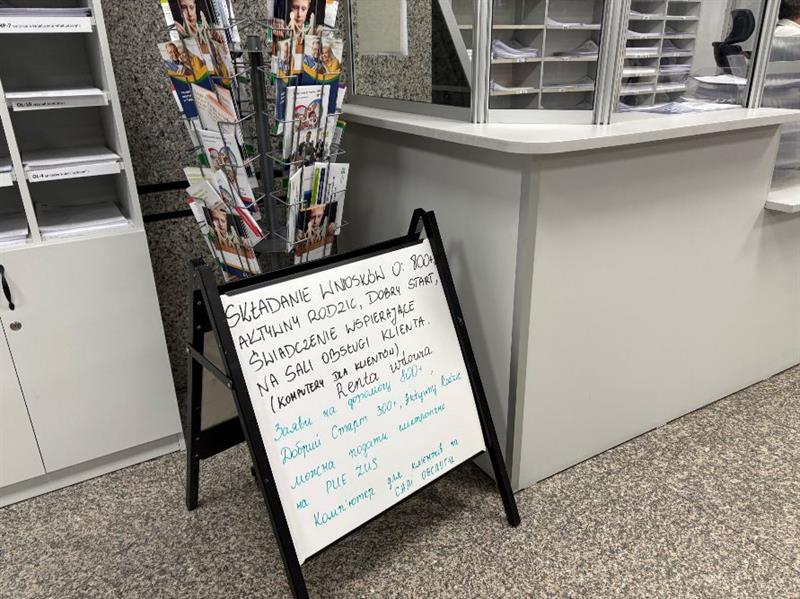 SKŁADANIE WNIOSKÓW O: 800+
AKTYWNY RODZIC, DOBRY START,
ŚWIADCZENIE WSPIERAJĄCE
NA SALI OBSŁUGI KLIENTA.
(KOMPUTERY DLA KLIENTÓW)
Renta wdowia
Заяви на допомогу 800+,
Добрий Старт 300+, Активну Родзіс
можна подати електронно
на PUE ZUS
Комп'ютер для клієнтів на
САЛІ ОБСЛУГИ